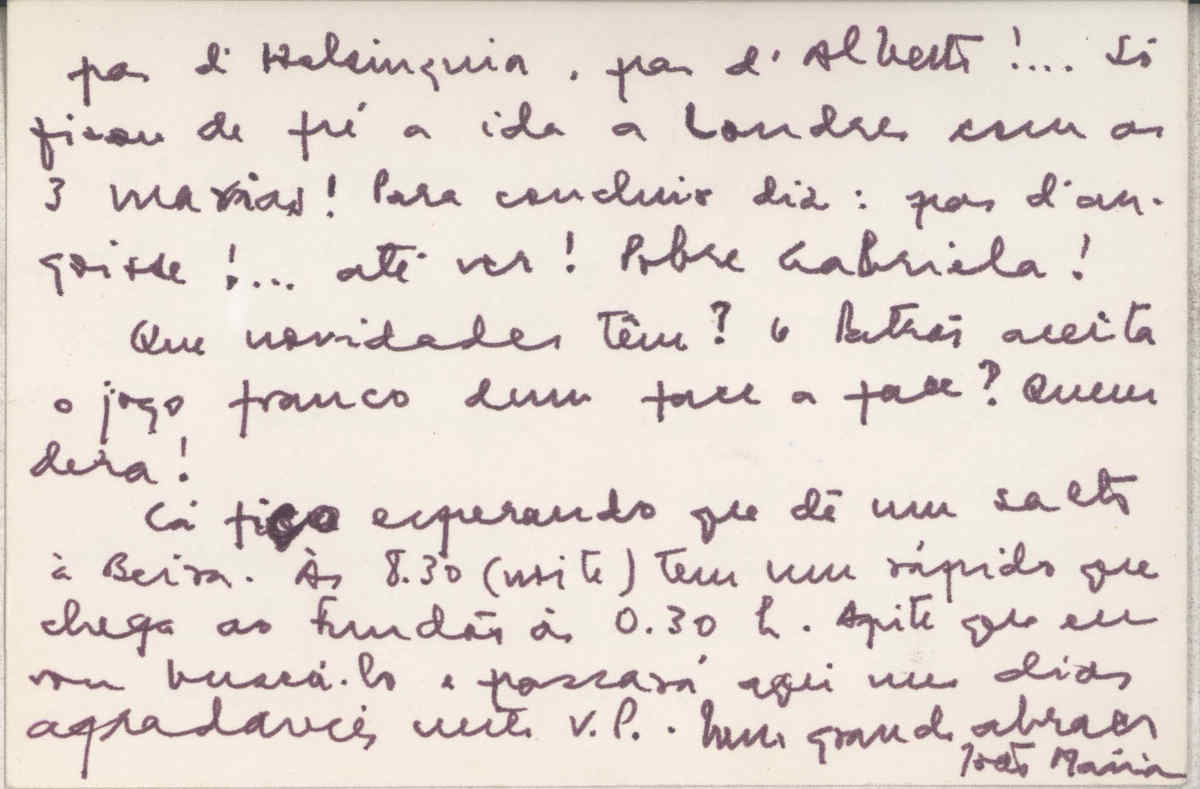 pas d'Helsinquia, pas d'Albert!... Só
ficou de pé a ida a Londres com as
3 marias! Para concluir dia: pas d'an-
goisse!... até ver! Pobre Gabriela!
Que novidades têm? O Patrão aceita
o jogo franco dum face a face? Quem
dera!
Cá fico esperando que dê um salto
à Beira. Às 8.30 (noite) tem um rápido que
chega ao Fundão às 0.30 h. Apite que eu
vou buscá-lo e passará aqui uns dias
agradáveis nesta V.P.. Num grande abraço
João Maria